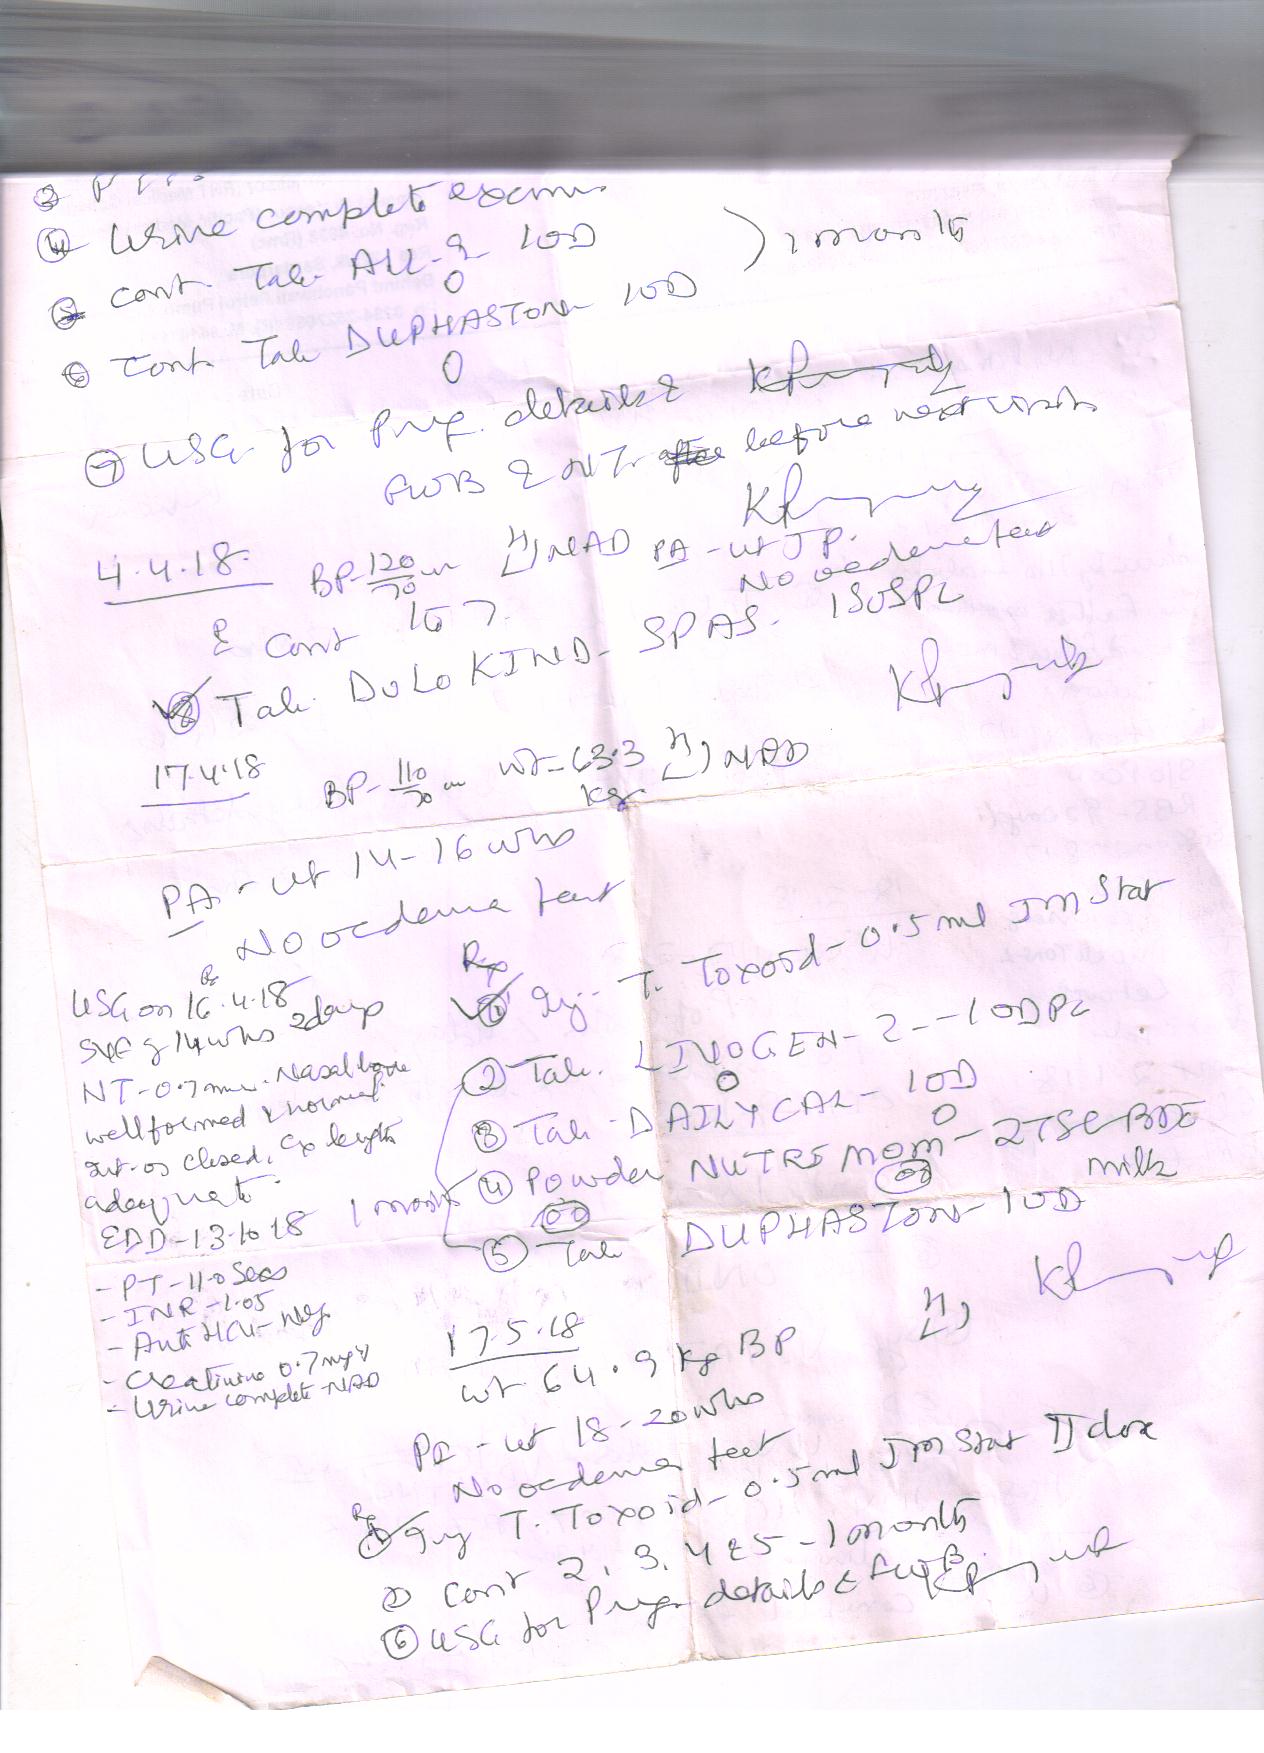 ④ Urine complete exam
⑤ Cont. Tab. ALL-9 10D
0
⑥ Cont. Tab DUPHASTON 10D
0
) 1 month
⑦ USG for Preg. details &
FWB & NT before next visit
4.4.18. BP-120/70 NAD PA - ut JP.
No oedema feet
Cont 1 to 7
⑧ Tab. DOLOKIND-SPAS. 1SOSPC
17.4.18 BP-110/70 wt-63.3 kg NAD
PA - ut 14-16 wks
No oedema feet
USG on 16.4.18
SLF of 14 wks 2days
NT-0.7mm. Nasal bone
well formed & normal
int-os closed, Cx length
adequate.
EDD-13.10.18
- PT-11.0 Secs
- INR-1.05
- Anti HCV-Neg
- Creatinine 0.7mg%
- Urine complete-NAD
Rx
① Inj. T. Toxoid-0.5 ml IM Stat
② Tab. LIVOGEN-Z--10DPC
0
③ Tab-DAILYCAL-10D
0
④ Powder NUTRE MOM-2TSF BDC
milk
⑤ Tab DUPHASTON-10D
1 month
17.5.18
wt 64.9 kg BP
PA - ut 18-20 wks
No oedema feet
Rx
① Inj T. Toxoid-0.5 ml IM Stat II dose
② Cont 2, 3, 4 & 5-1 month
⑥ USG for Preg. details & FWB.